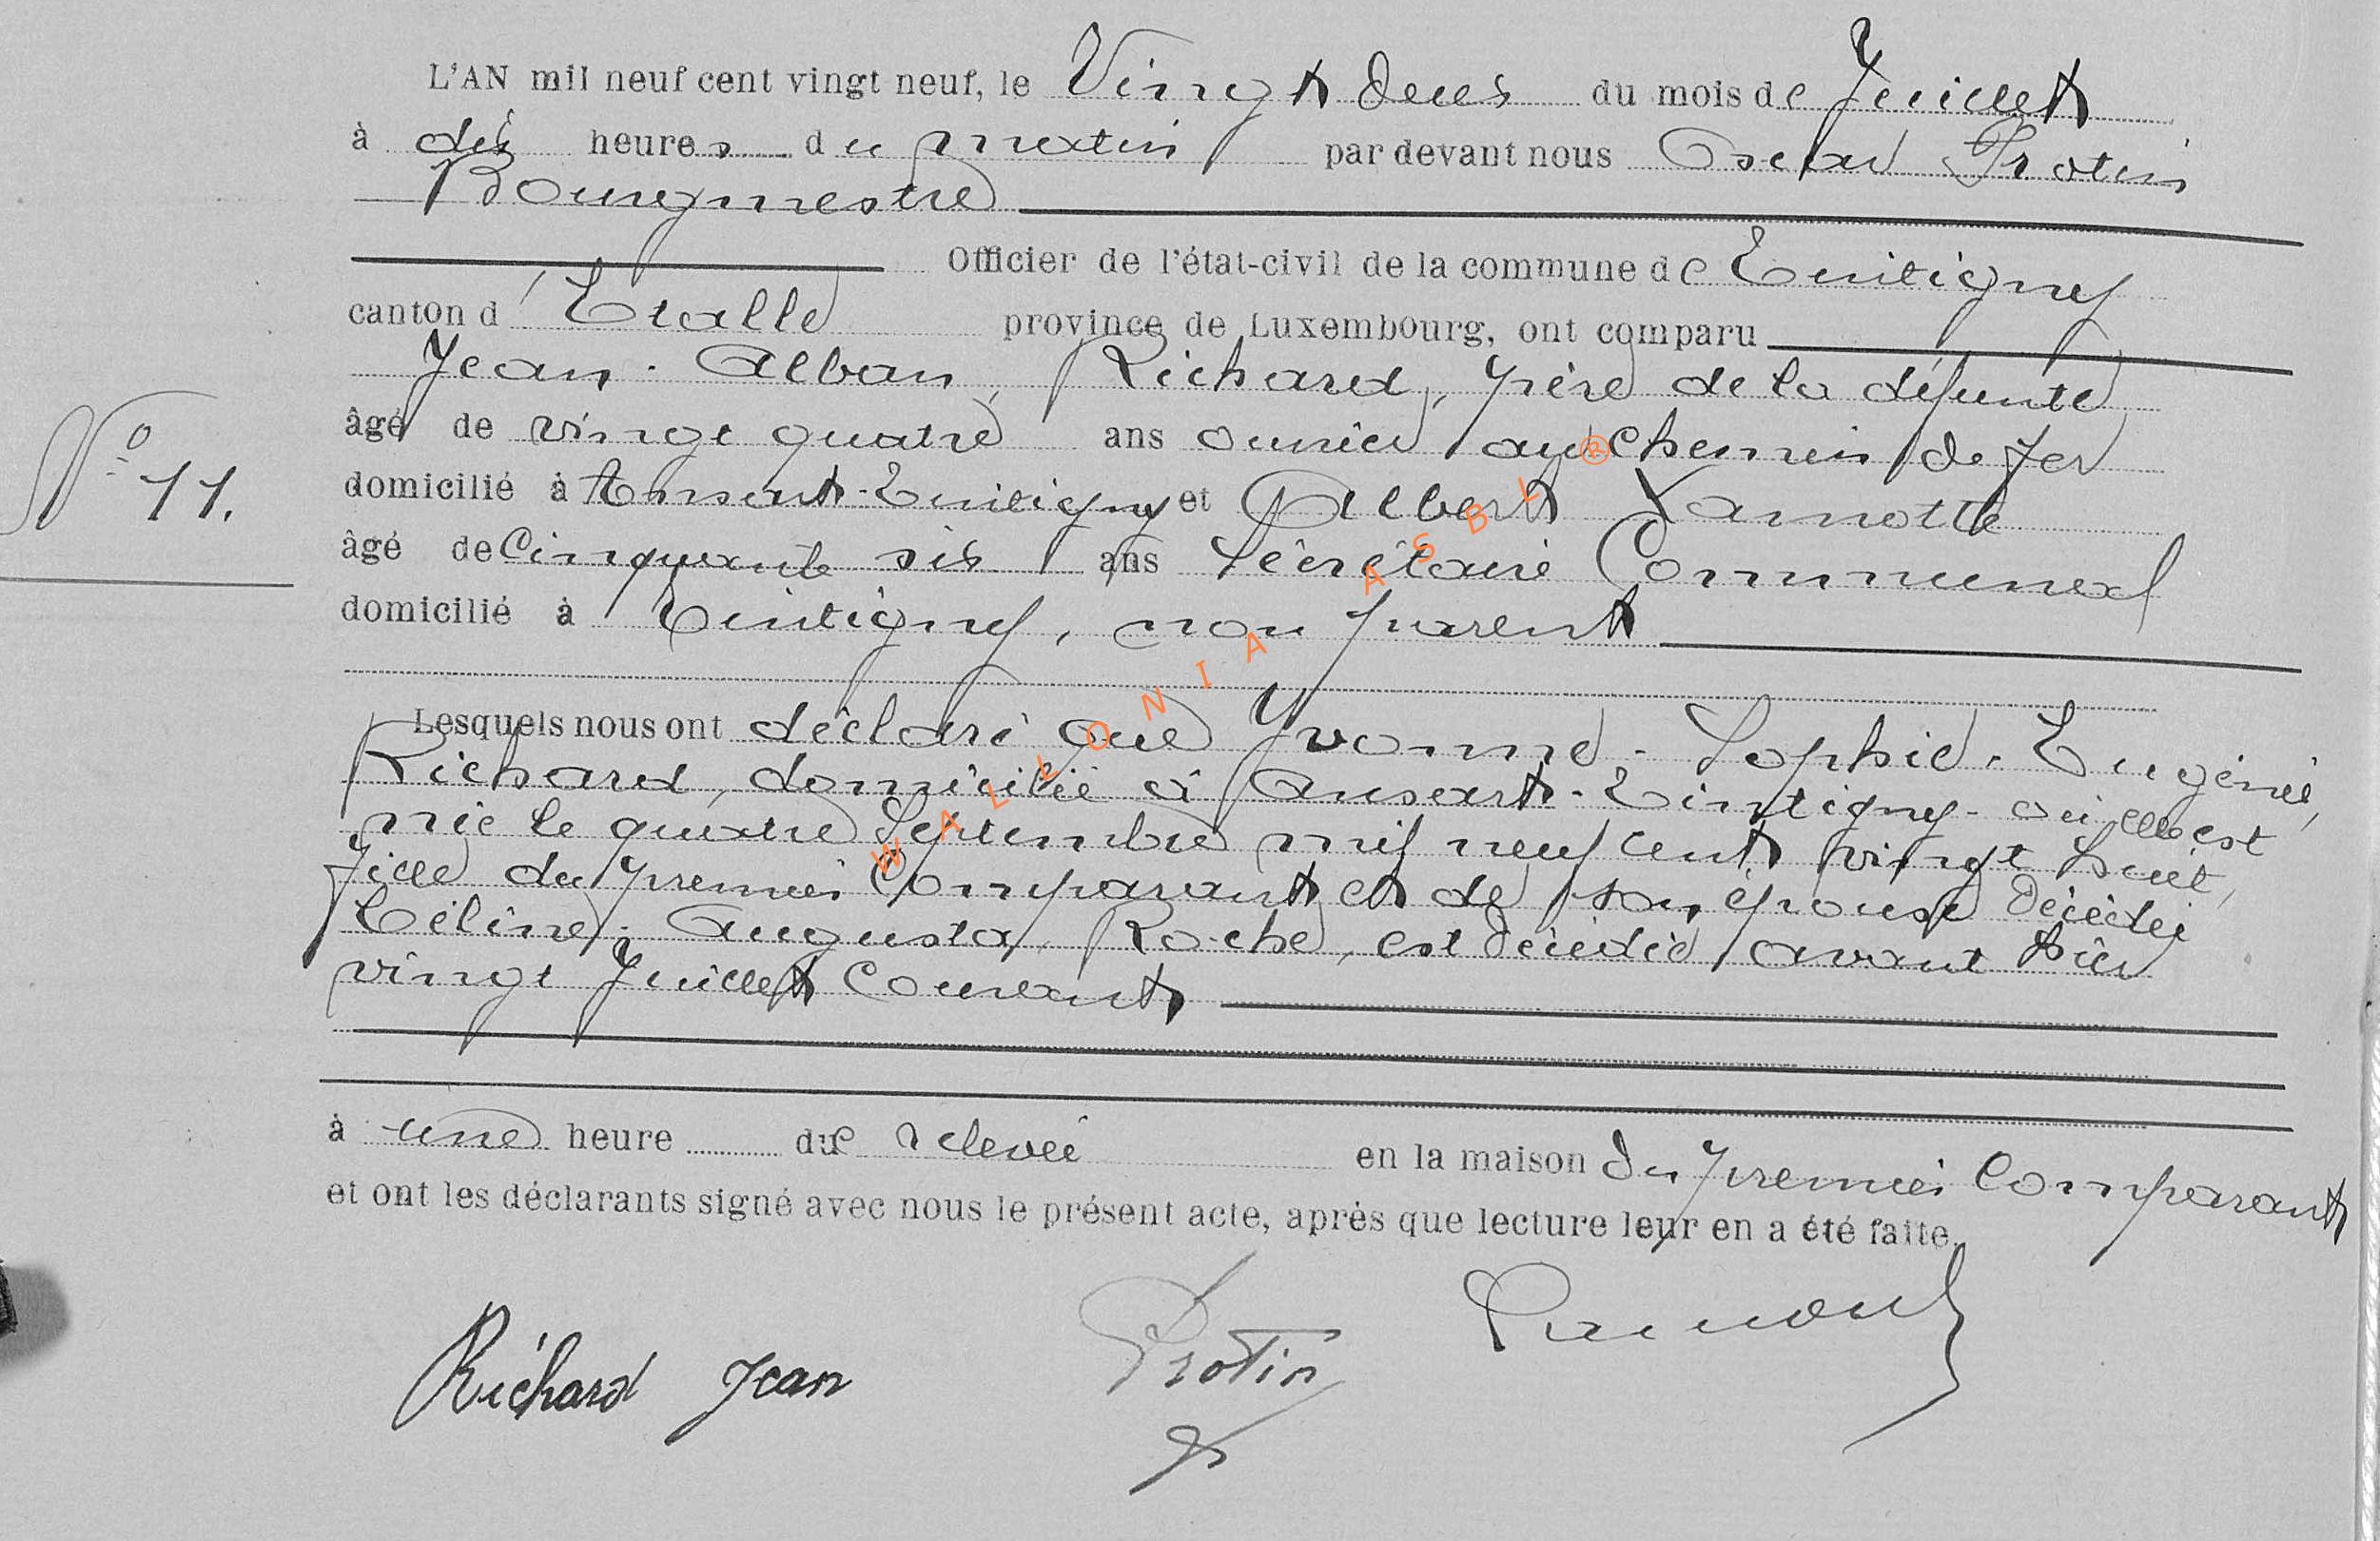 L'AN mil neuf cent vingt neuf, le Vingt deux du mois de Juillet
à dix heures du matin par devant nous Oscar Protin
Bourgmestre
Officier de l'état-civil de la commune de Tintigny
canton d'Etalle province de Luxembourg, ont comparu
Jean-Alban Richard, père de la défunte
âgé de vingt quatre ans ouvrier au chemin de fer
N° 11.
domicilié à Ansart-Tintigny et Albert Lamotte
âgé de Cinquante six ans Secrétaire Communal
domicilié à Tintigny, non parent
Lesquels nous ont déclaré que Yvonne-Sophie-Eugénie
Richard, domiciliée à Ansart-Tintigny-où elle est
née le quatre Septembre mil neuf cent vingt huit,
fille du premier Comparant et de son épouse décédée
Céline-Augusta Roche, est décédée avant hier
vingt Juillet Courant
à une heure de relevée en la maison du premier Comparant
et ont les déclarants signé avec nous le présent acte, après que lecture leur en a été faite.
Richard Jean Protin
WALLONIA ASBL ®